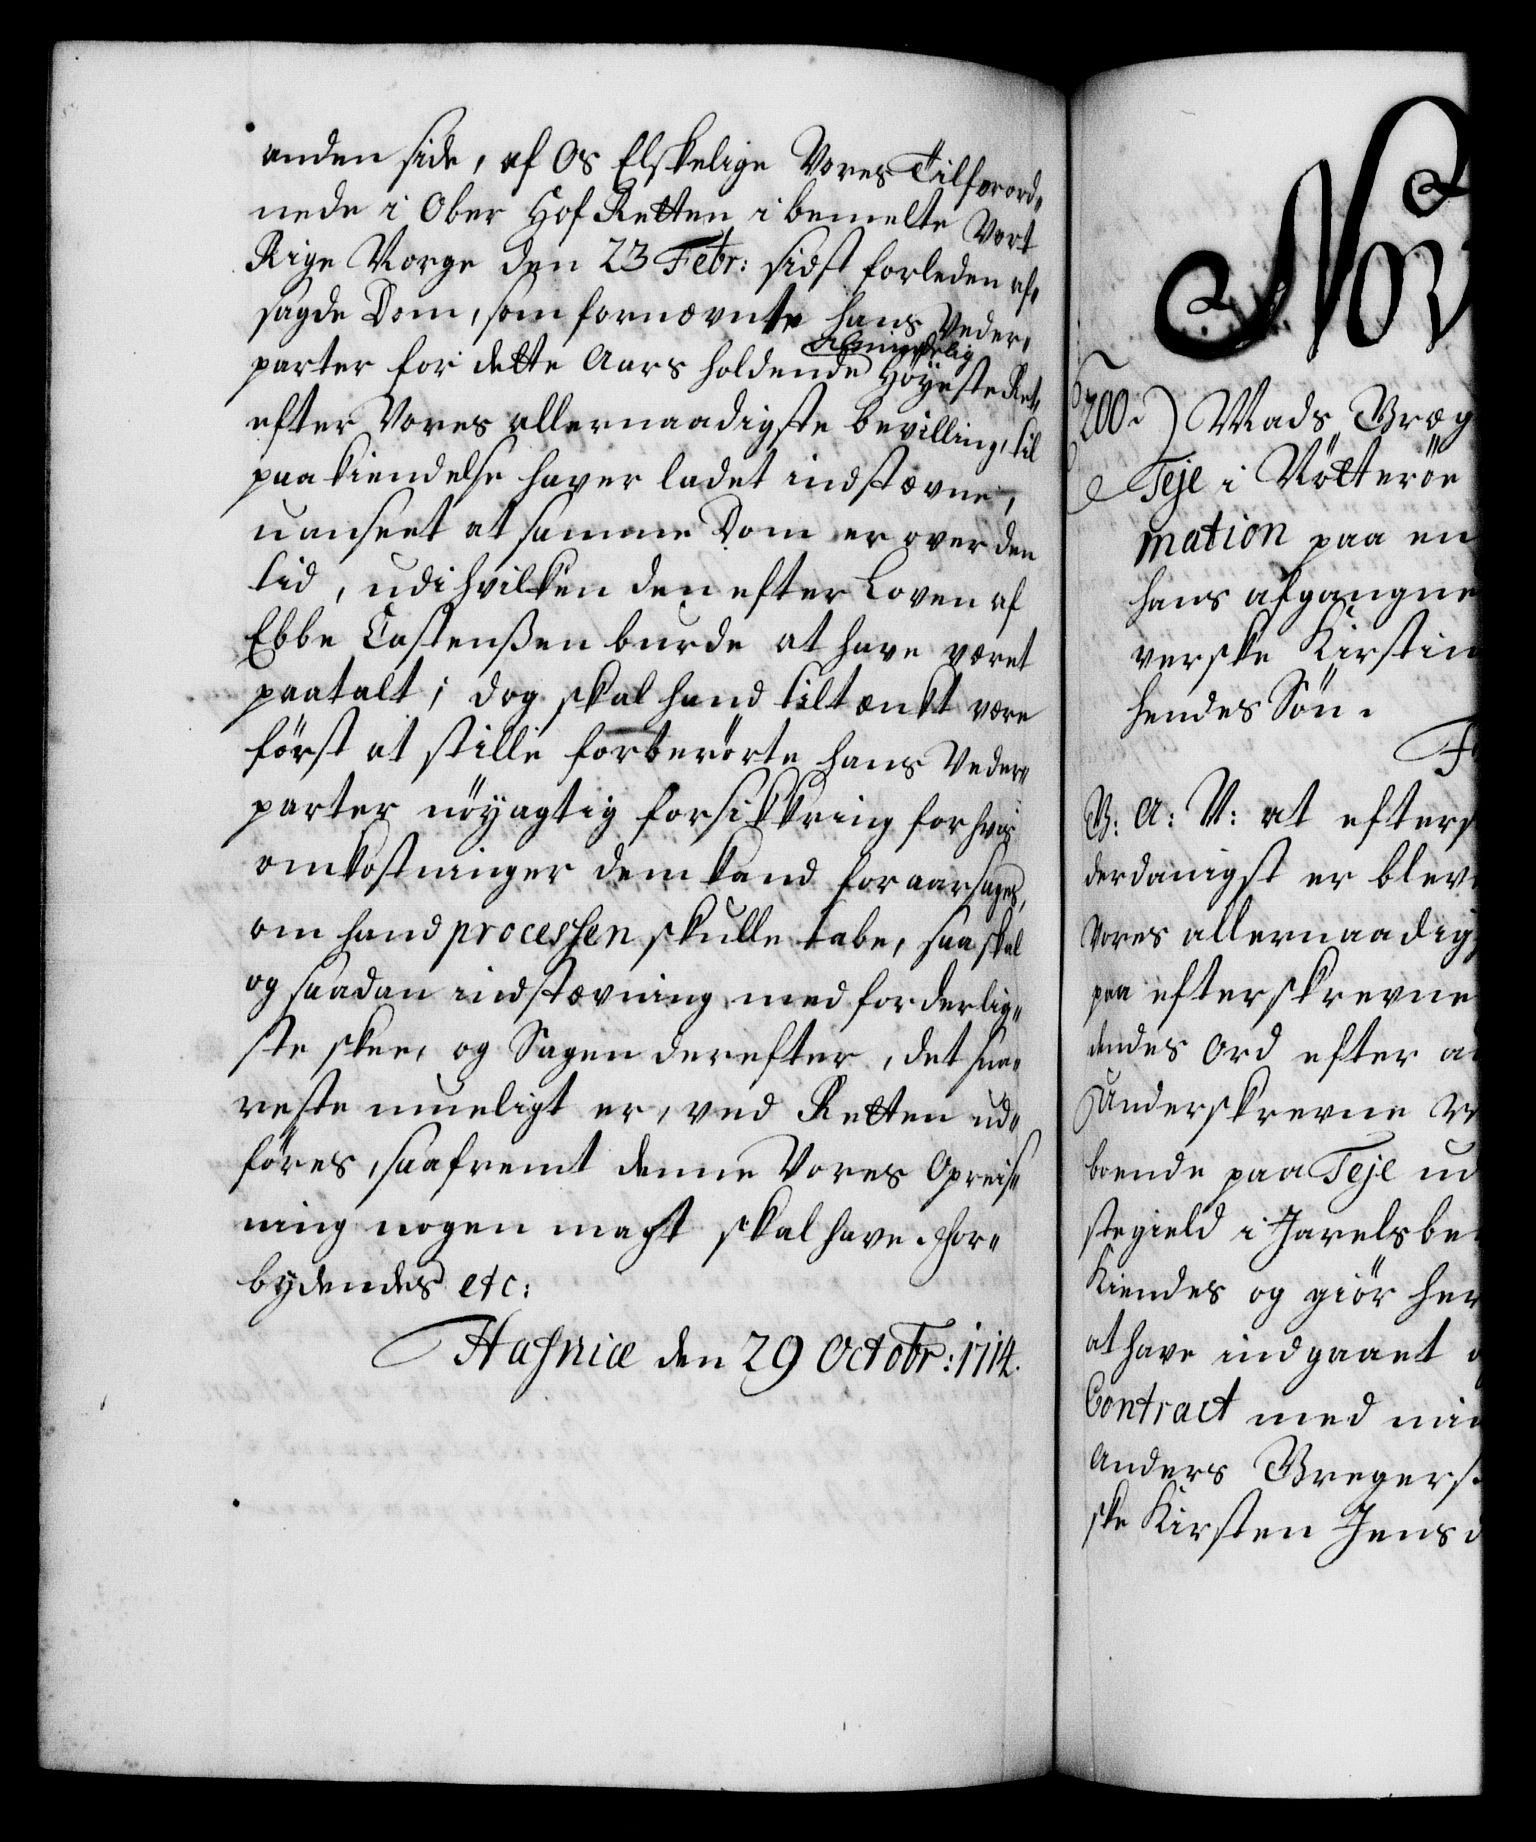 anden side, af Os Elskelige Vores Tilforord„
nede i Ober Hof Retten i bemelte Vort
Rige Norge den 23 Febr: sidst forleden af„
sagde Dom, som fornævnte hans Veder„
Almindelig
parter for dette Aars holdende Höyeste Ret,
efter Vores allernaadigste bevilling, til
paakiendelse haver ladet indstævne,
uanseet at samme Dom er over den
tid, udi hvilken den efter Loven af
Ebbe Castenßen burde at have været
paatalt; dog skal hand tiltænkt være
först at stille forberörte hans Veder„
parter nöyagtig forsikkring for hvis
omkostninger dem kand foraarsages,
om hand processen skulle tabe, saa skal
og saadan indstævning med forderlig„
ste skee, og Sagen derefter, det sna„
reste mueligt er, ved Retten ud„
föres, saafremt denne Vores Opreis„
ning nogen magt skal have. For„
bydendes etc:
Hafniæ den 29 Octobr: 1714.
Nor
200.) Mads Bræg
Teje i Nötteröe
mation paa en
hans afgangne
verske Kirstin
hendes Sön.
F
V: A: V: at efters
derdanigst er blev
Vores allernaadig
paa efterskrevne
dendes Ord efter a
Underskrevne
boende paa Teje ud
stegield i Jarelsbe
Kiendes og giör her
at have indgaaet
Contract med min
Anders Bregers
ske Kirsten Jens d